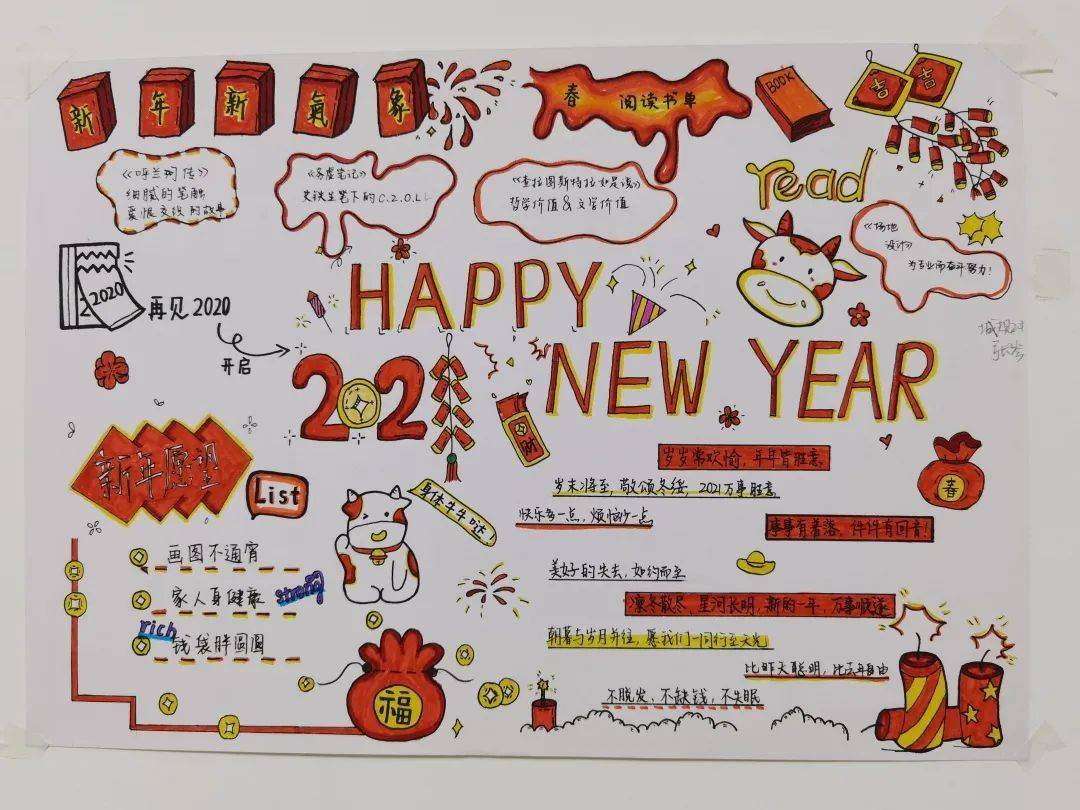 新年新氣象
春 阅读书单
BOOK
吉 吉
《呼兰河传》
细腻的笔触
爱恨交织的故事
《务虚笔记》
史铁生笔下的C.2.O.LL
《查拉图斯特拉如是说》
哲学价值&文学价值
read
《场地
设计》
为专业而奋斗努力!
2020
再见2020
开启
HAPPY
2021
NEW YEAR
财
新年愿望
List
身体牛牛哒!
画图不通宵
家人身健康
strong
rich
钱袋胖圆圆
福
岁岁常欢愉,年年皆胜意
岁末将至,敬颂冬绥 2021万事胜意
快乐多一点,烦恼少一点
春
事事有着落,件件有回音!
美好的失去,如约而至
凛冬散尽,星河长明,新的一年,万事顺遂
朝暮与岁月并往,愿我们一同行至天光
比昨天聪明,比去年自由
不脱发,不缺钱,不失眠